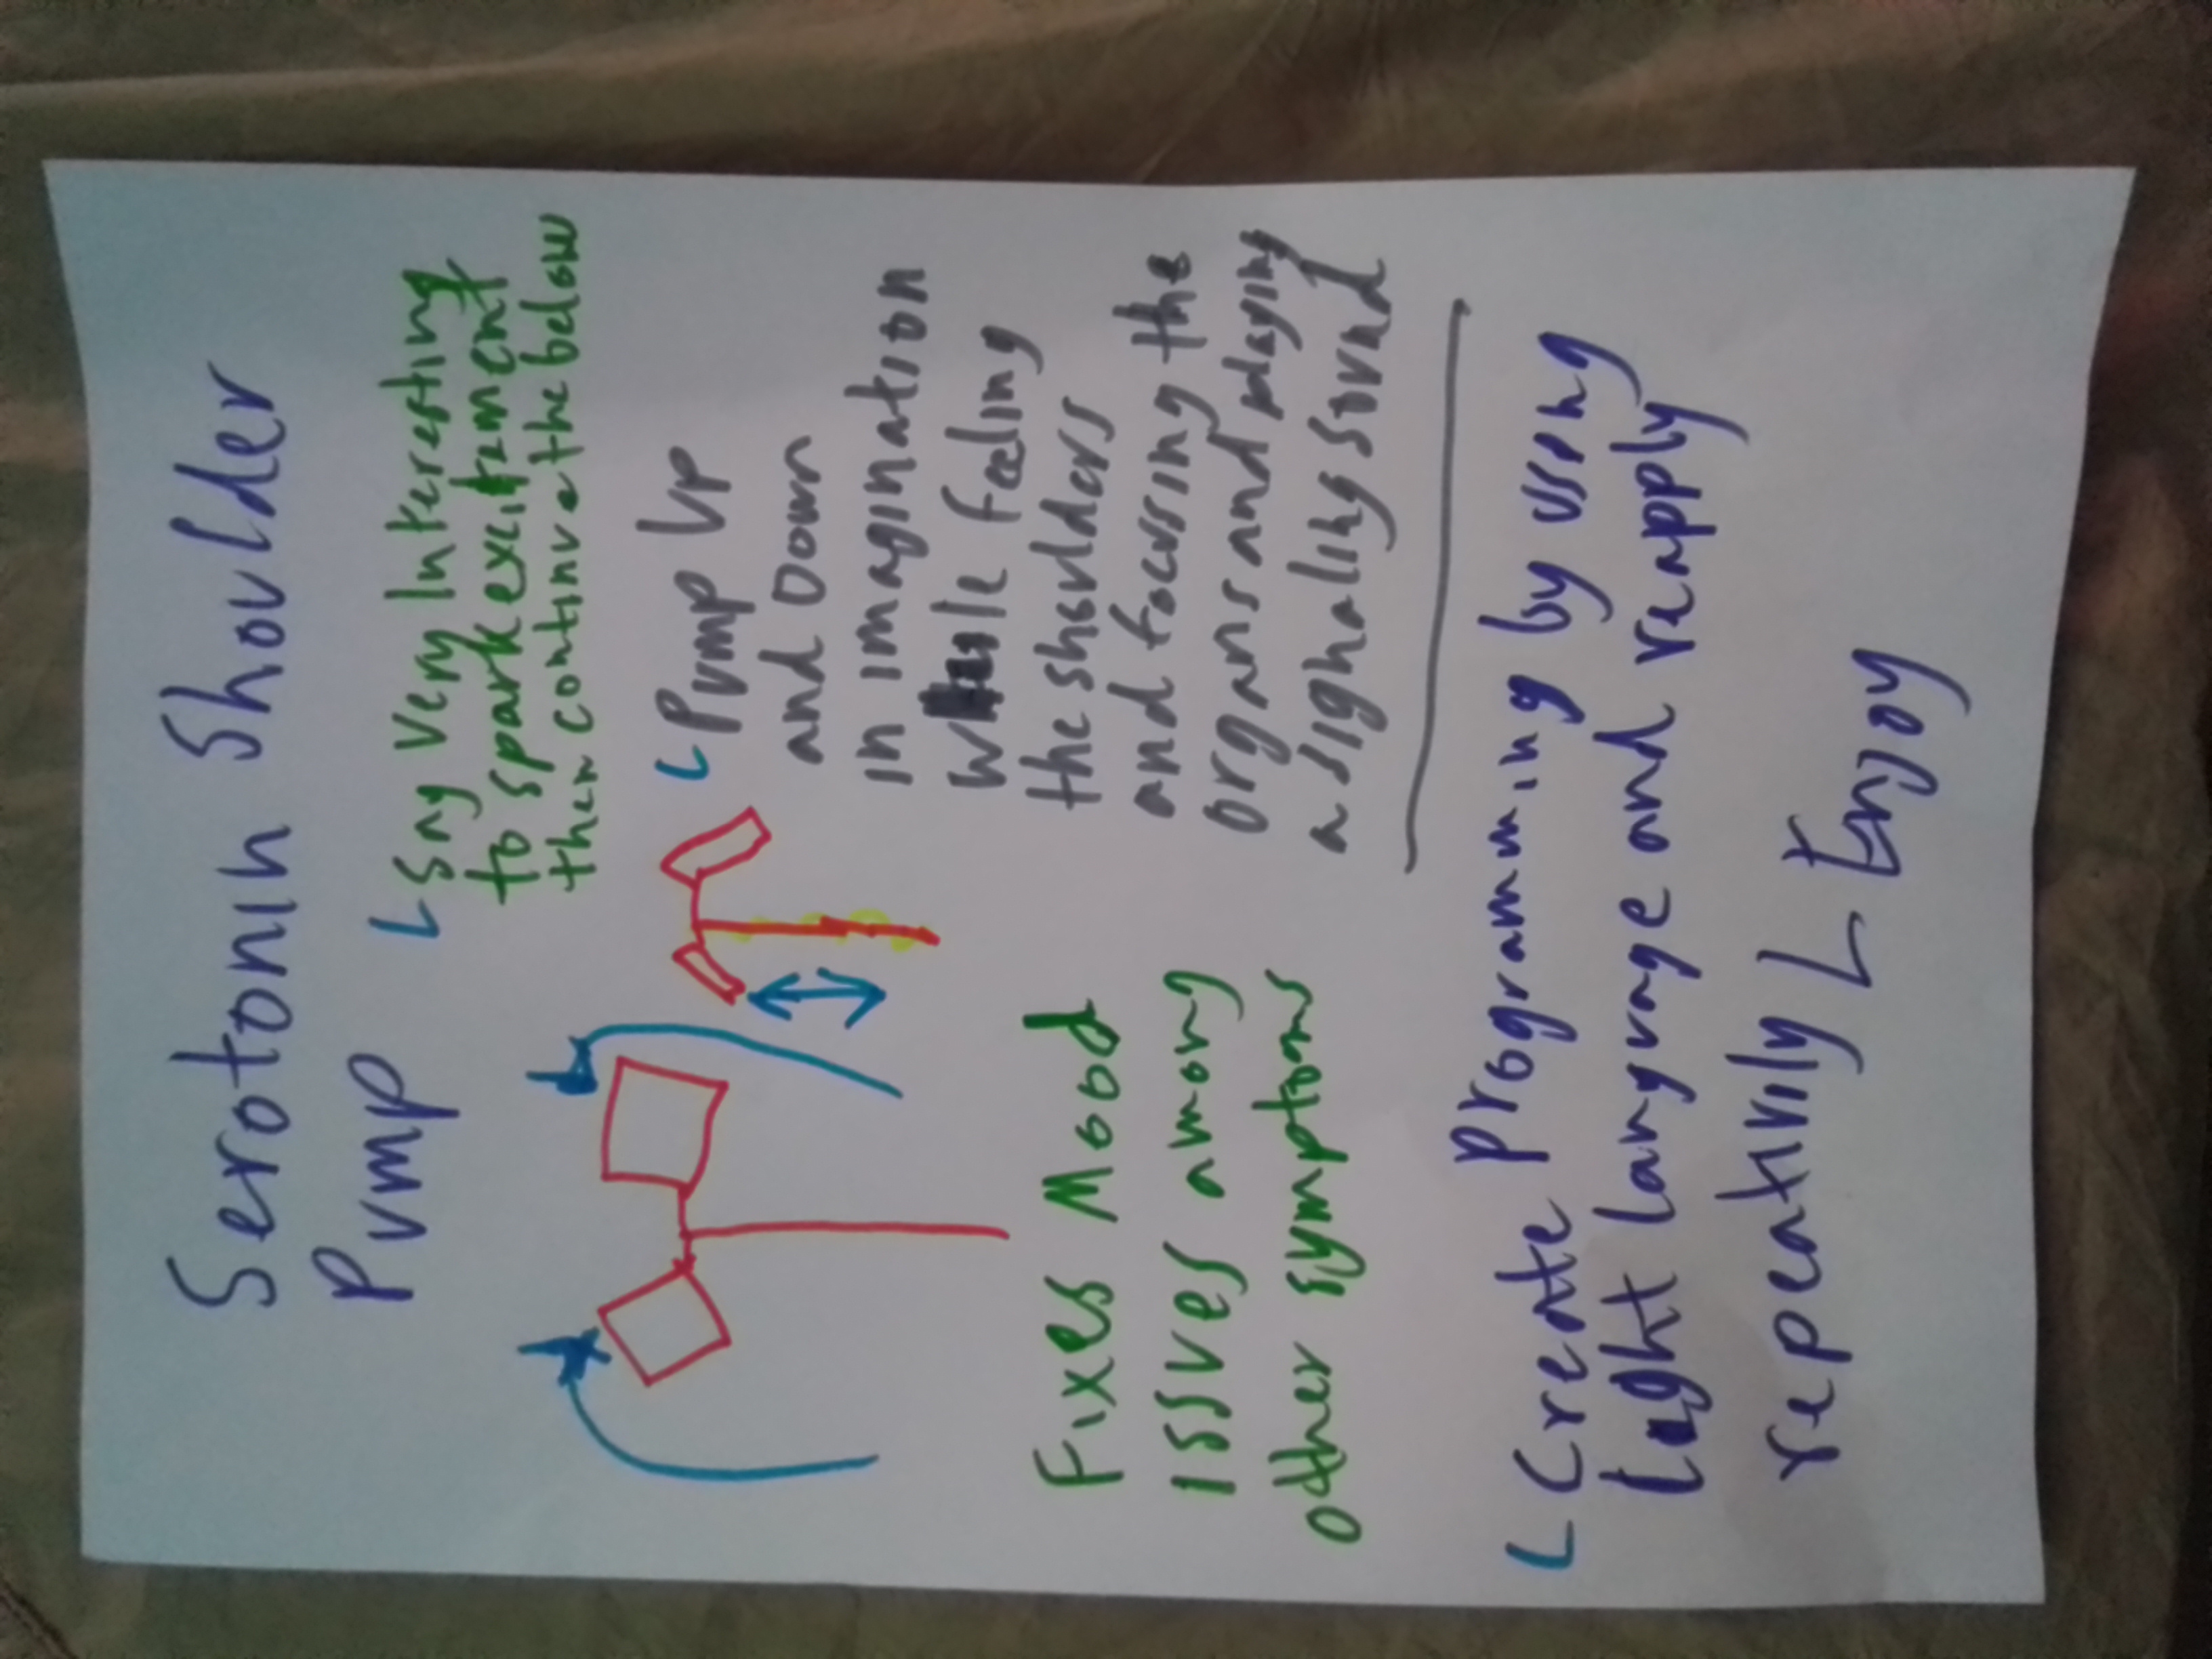 Serotonin Shoulder
Pump
Say Very Interesting
to spark exitement
then continue the below
Pump Up
and Down
in imagination
while feeling
the shoulders
and focusing the
organs and playing
a signaling sound
Fixes Mood
Issues among
other symptoms
Create Programming by using
Light Language and reapply
repeatily Enjoy